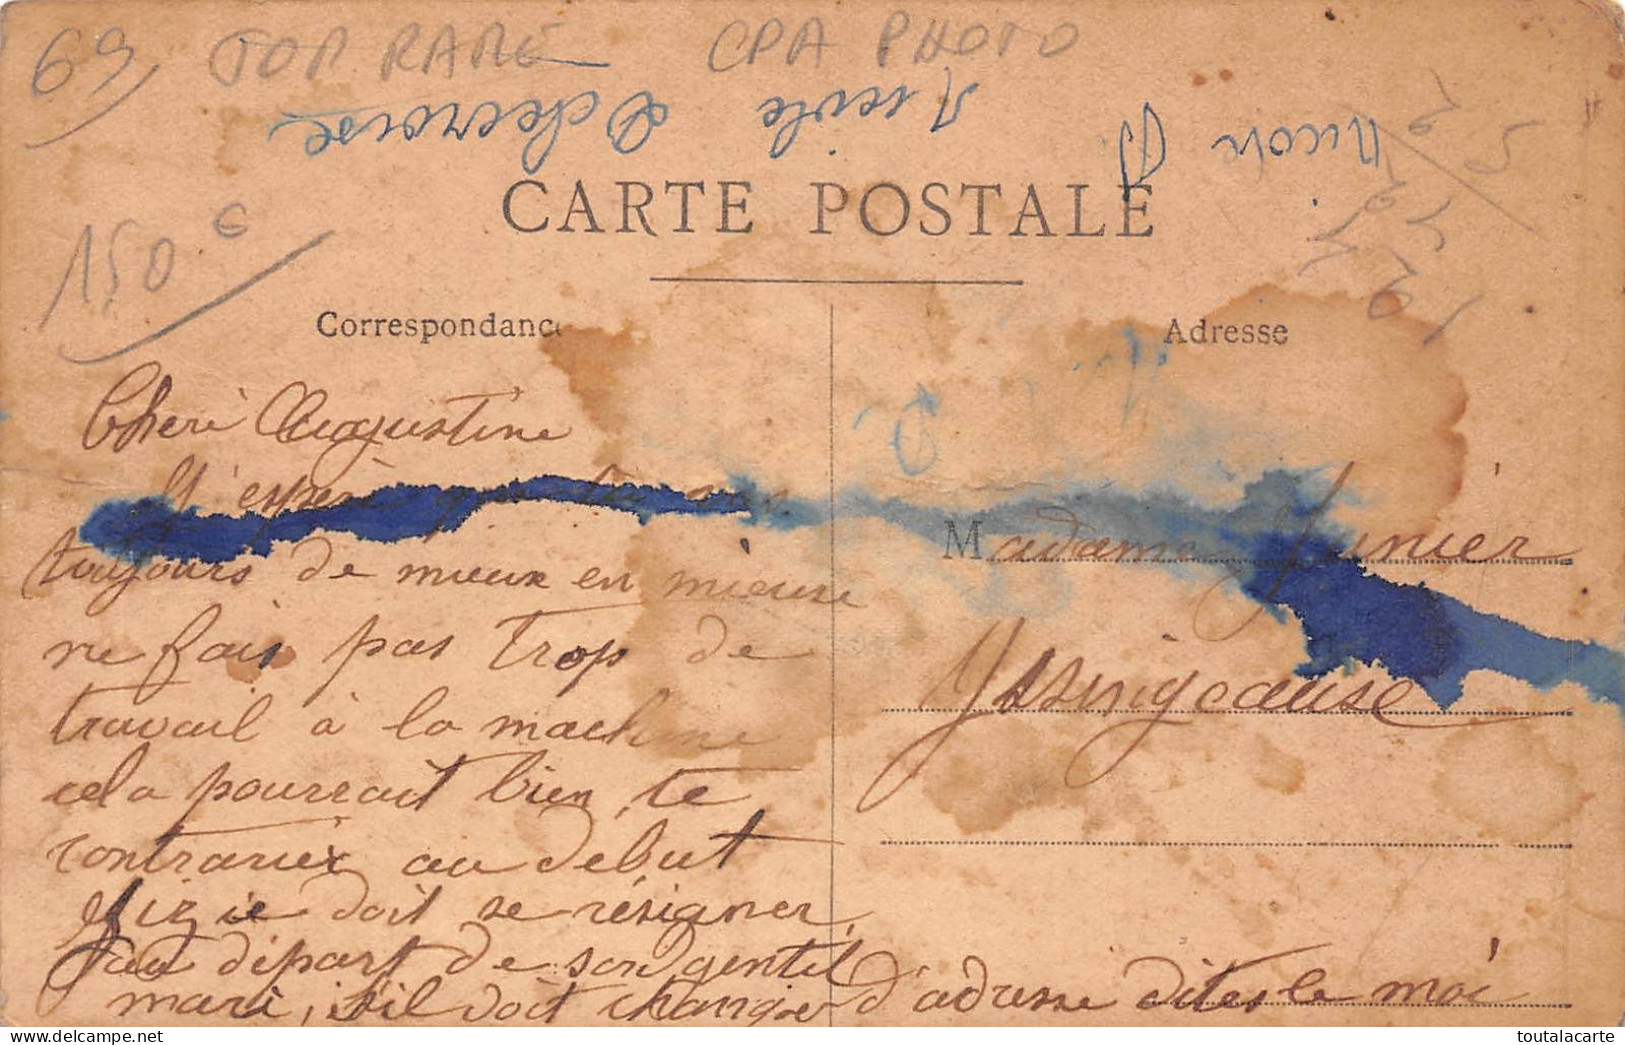 69 TOP RARE CPA PHOTO
Nicole
Nicole
150 €
CARTE POSTALE
Correspondance
Adresse
Cheri Augustine
J'espère que
toujours de mieux en mieux
ne fais pas trop de
travail à la machine
cela pourrait bien te
contrariex au début
doit se résigner
au départ de son gentil
mari, s'il doit changer d'adresse dites le moi
Madame Junier
Yssingeause
toutalacarte